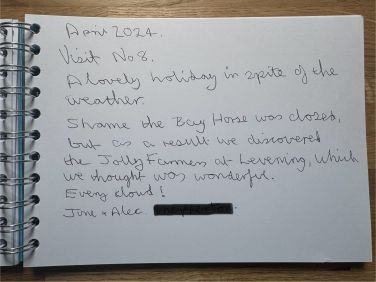 April 2024.
Visit No 8.
A lovely holiday in spite of the
weather.
Shame the Bay Horse was closed,
but as a result we discovered
the Jolly Farmers at Levening, which
we thought was wonderful.
Every cloud!
June & Alec